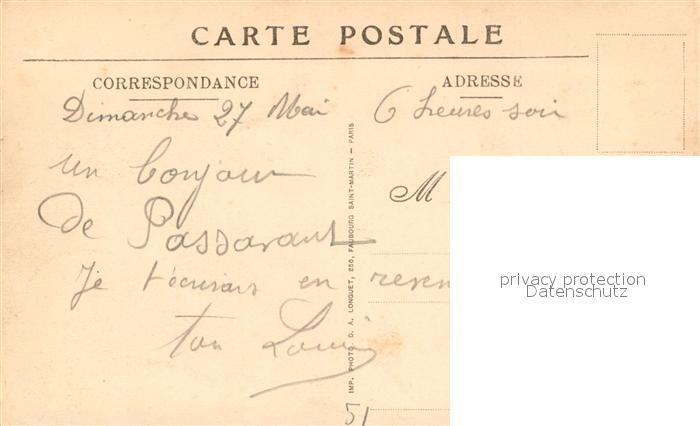 CARTE POSTALE
CORRESPONDANCE
ADRESSE
Dimanche 27 Mai 6 heures soir
un bonjour
de Passavant
Je t'écrirai en reven
ton Louis
M
IMP. PHOTO. D. A. LONGUET, 250, FAUBOURG SAINT-MARTIN — PARIS
51
privacy protection
Datenschutz